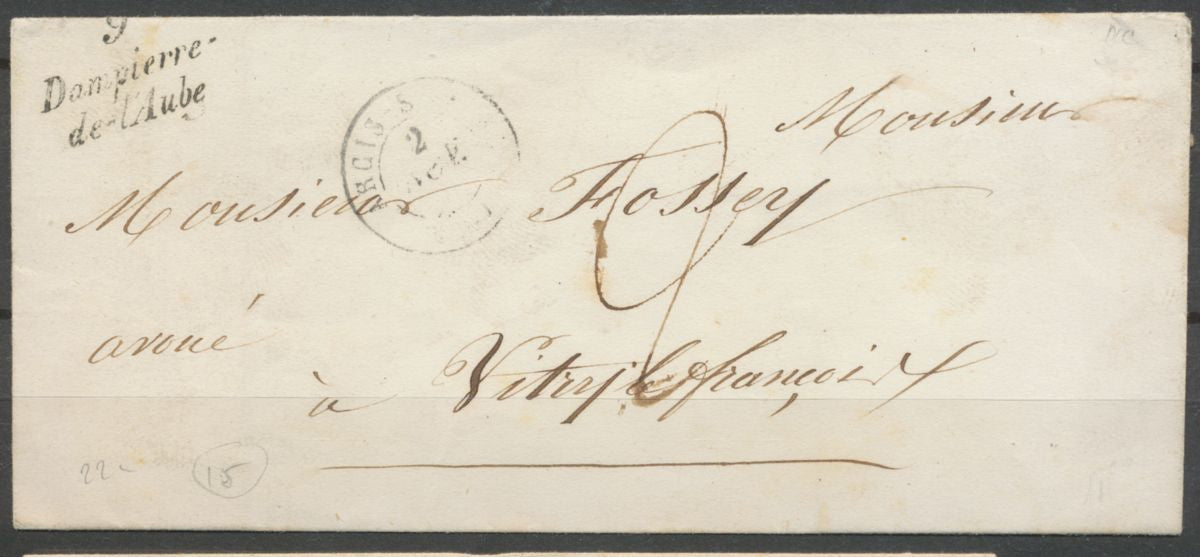 9
Dampierre-
de-l'Aube
ARCIS-S
2
NOV.
Monsieur
Monsieur Fossey
avoué
à Vitry le françois
22-
15